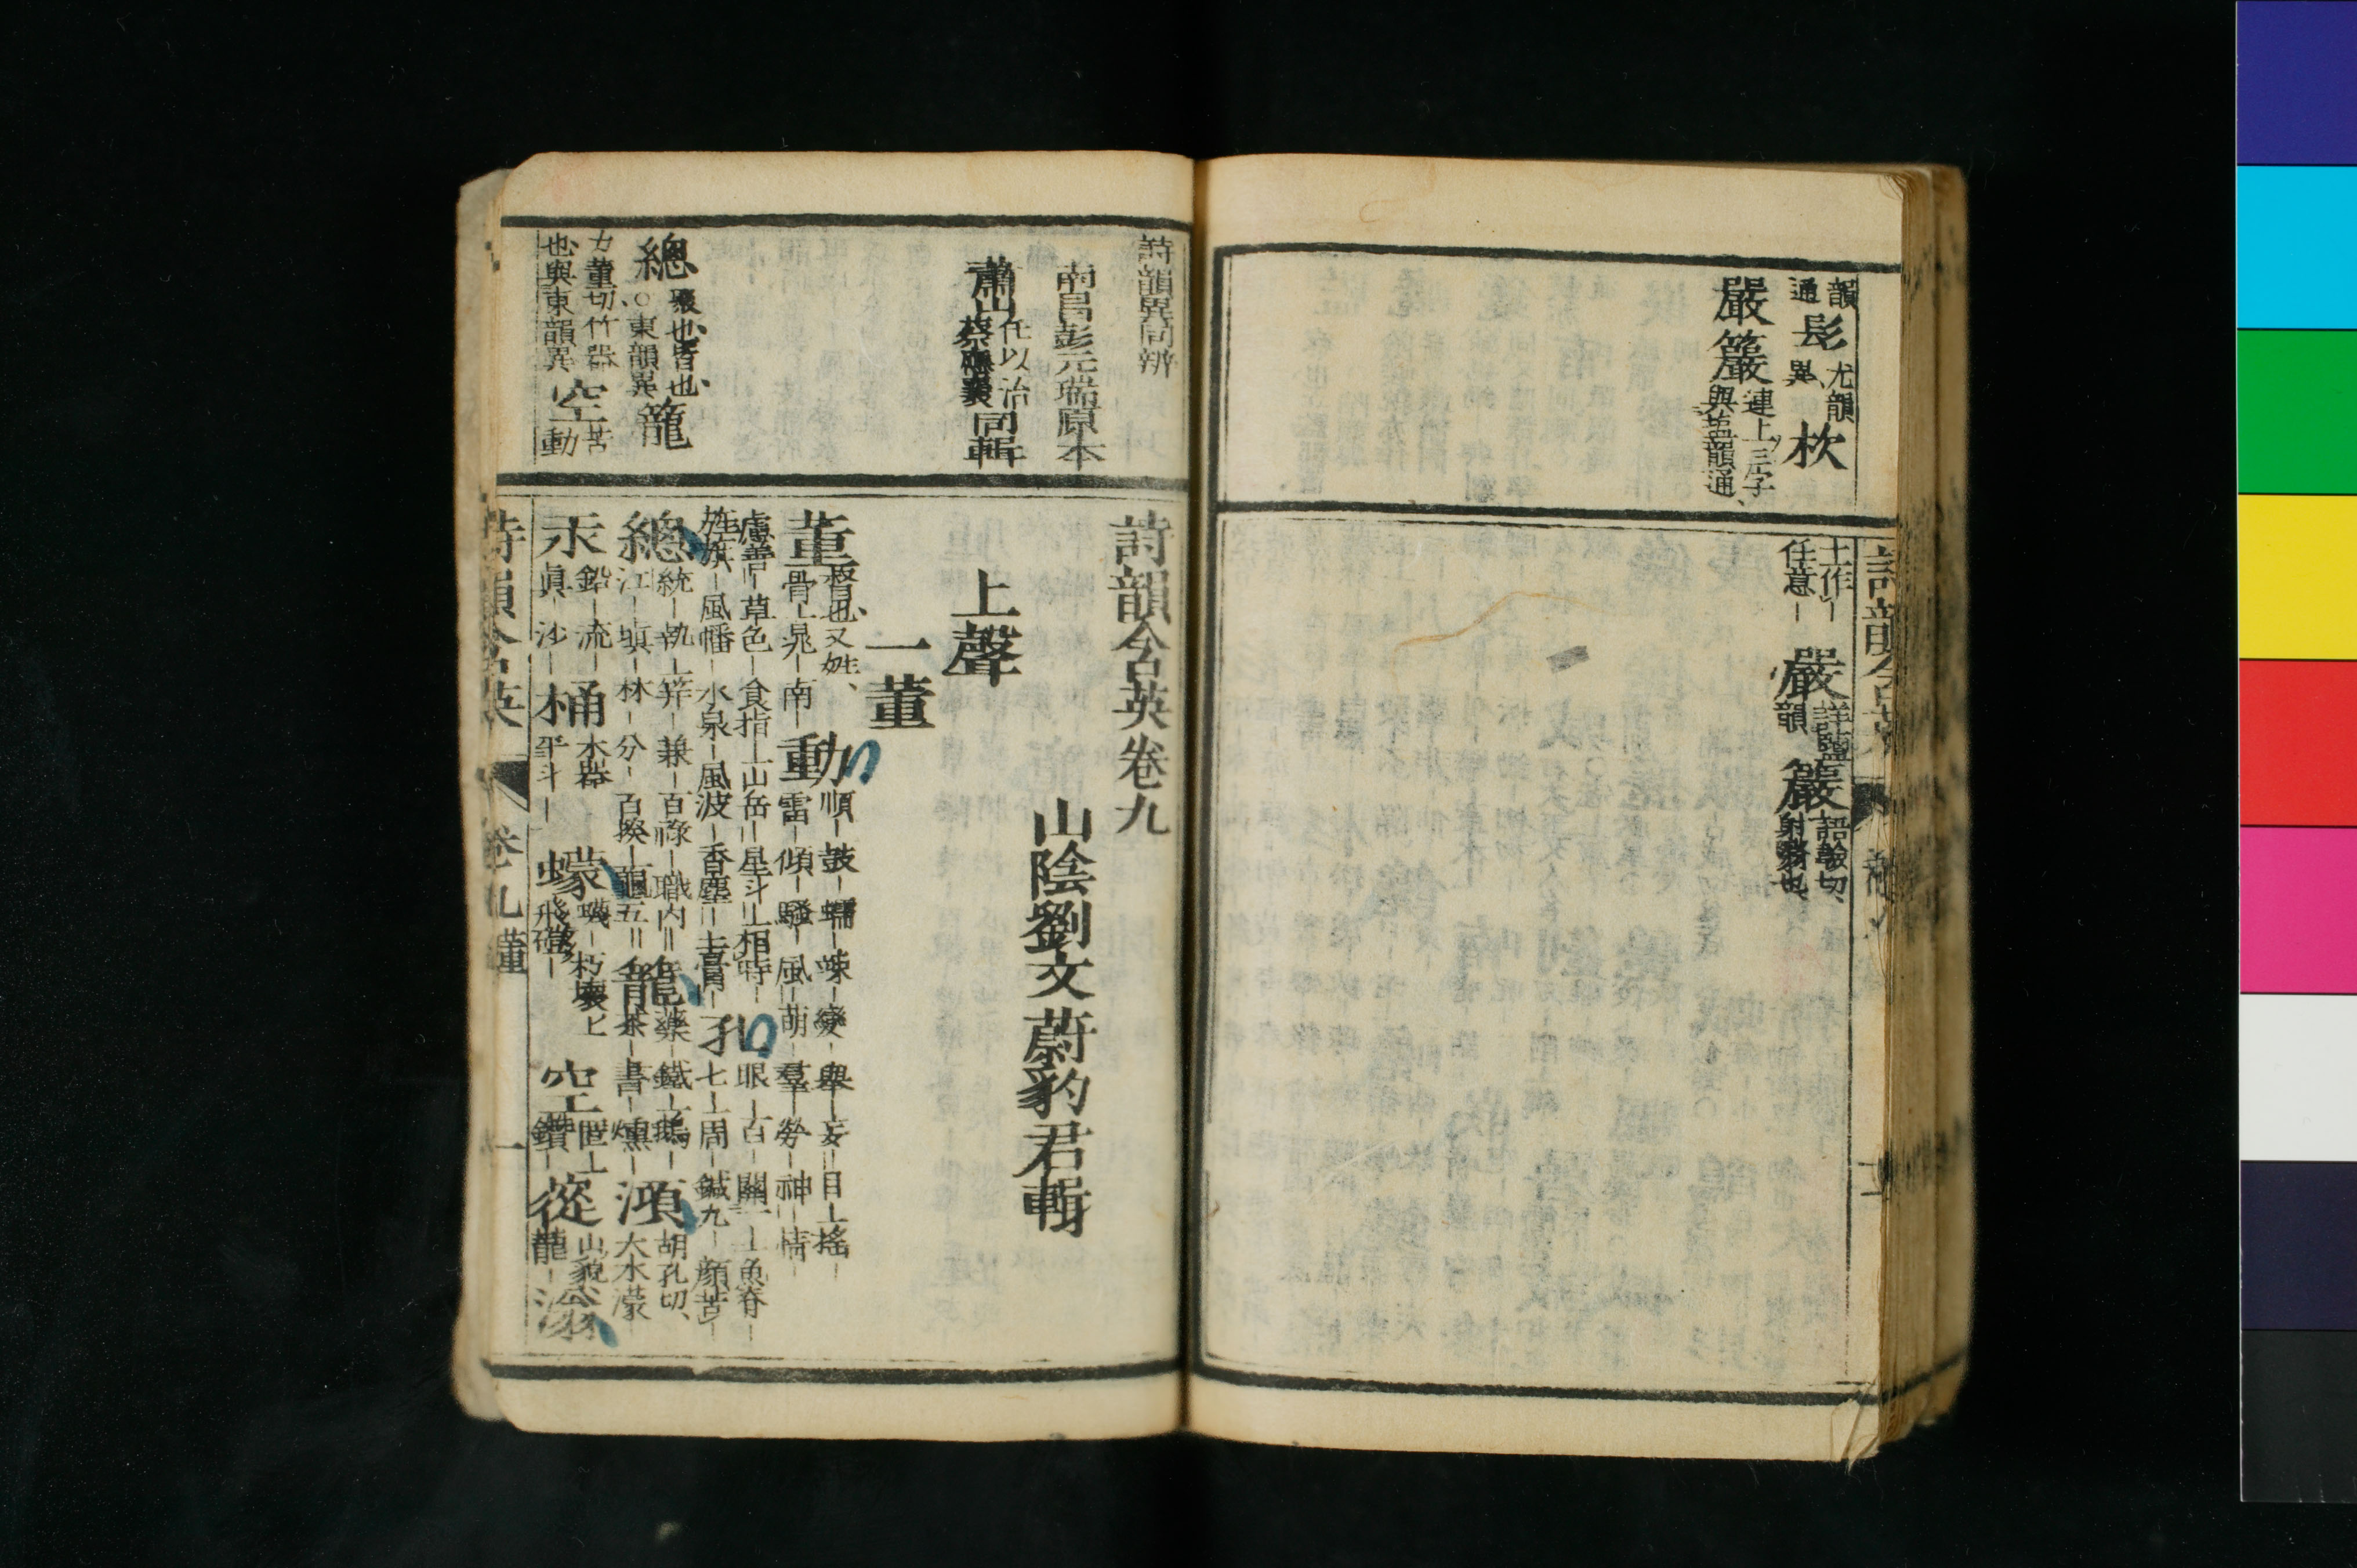 韻通髟尤韻異杴
嚴籢連上三字與鹽韻通
士作｜任意｜嚴詳鹽韻籢語驗切射翳也
詩韻異同辨
南昌彭元瑞原本
蕭山任以治蔡應襄同輯
總聚也皆也○東韻異籠
力董切竹器也與東韻異空苦動
詩韻含英卷九
山陰劉文蔚豹君輯
上聲
一董
董督也又姓骨｜晁｜南｜動順｜鼓｜蠕｜竦｜變｜舉｜妄｜目｜搖｜雷｜傾｜騷｜風｜萌｜羣｜勞｜神｜情｜
慮善｜草色｜食指｜山岳｜星斗｜相時｜旌旗｜風幡｜水泉｜風波｜香塵｜孔眼｜百｜關｜魚脊｜七｜周｜鍼九｜顏苦｜
總統｜執｜笄｜兼｜百祿｜職內｜江｜填｜林｜分｜百揆｜龍五｜藥｜鐵｜茶｜書｜燻｜澒胡孔切大水濛
汞鉛｜流｜眞｜沙｜桶木器平斗｜蠓蠛｜朽壤｜飛｜空｜鑽｜山貌｜蘢｜滃
詩韻含英
卷九 董
一